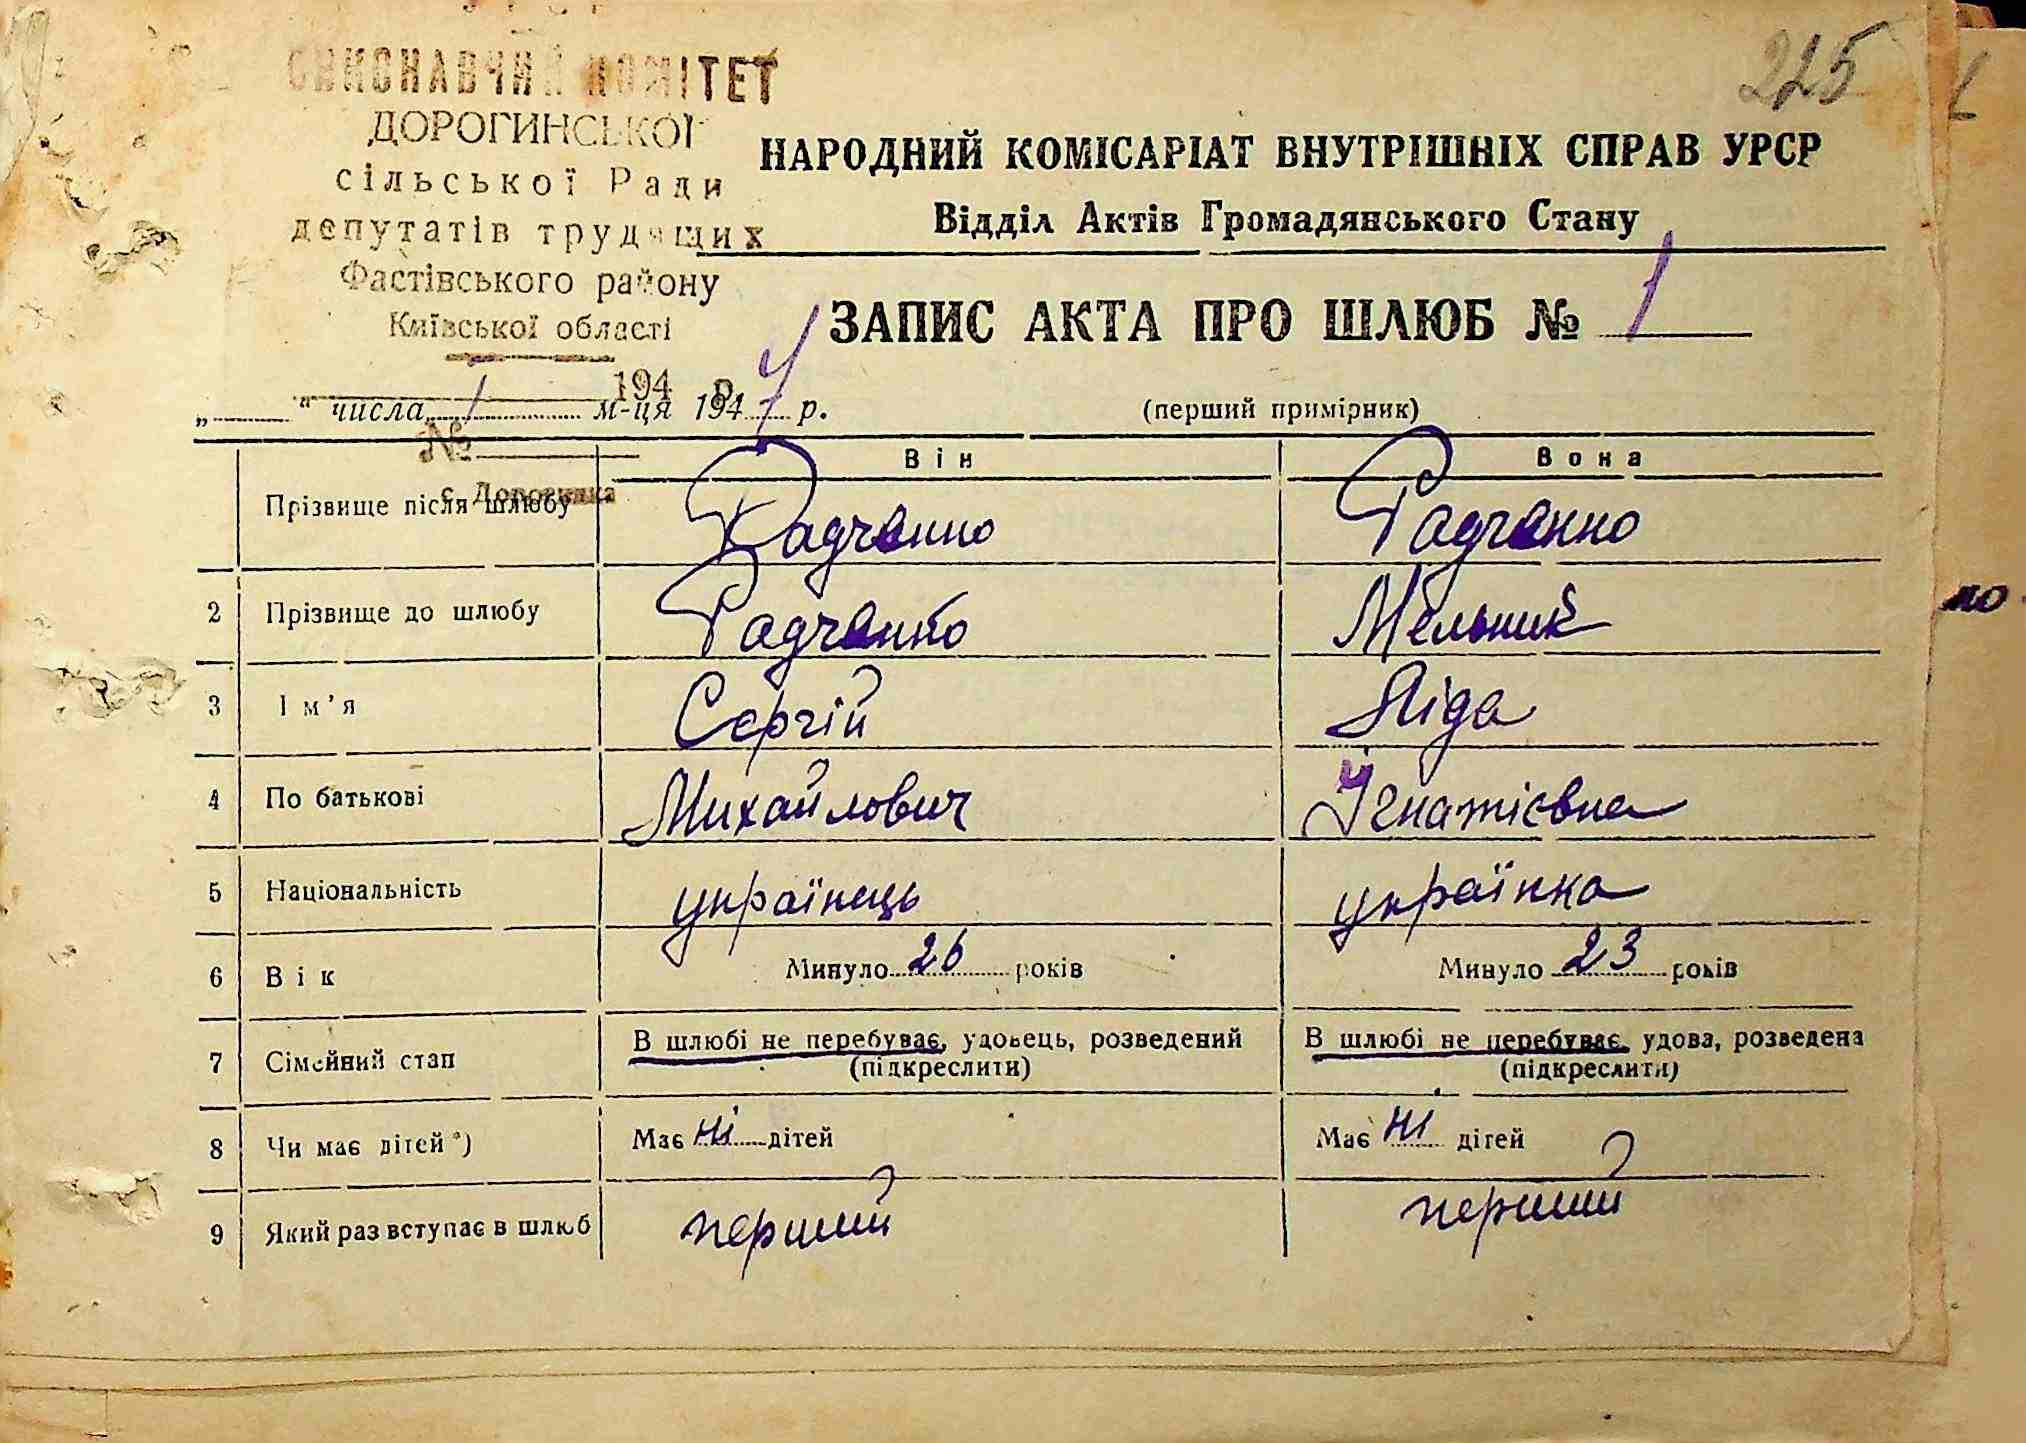 225
ВИКОНАВЧИЙ КОМІТЕТ
ДОРОГИНСЬКОЇ
сільської Ради
депутатів трудящих
Фастівського району
Київської області
194 р.
№
с. Дорогинка
НАРОДНИЙ КОМІСАРІАТ ВНУТРІШНІХ СПРАВ УРСР
Відділ Актів Громадянського Стану
ЗАПИС АКТА ПРО ШЛЮБ № 1
„ “ числа 1 м-ця 1947 р.
(перший примірник)
Він Вона
Прізвище після шлюбу Радченко Радченко
2 Прізвище до шлюбу Радченко Мельник
3 Ім'я Сергій Ліда
4 По батькові Михайлович Ігнатієвна
5 Національність українець українка
6 Вік Минуло 26 років Минуло 23 років
7 Сімейний стан В шлюбі не перебуває, удовець, розведений В шлюбі не перебуває, удова, розведена
(підкреслити) (підкреслити)
8 Чи має дітей *) Має ні дітей Має ні дітей
9 Який раз вступає в шлюб перший перший
ло